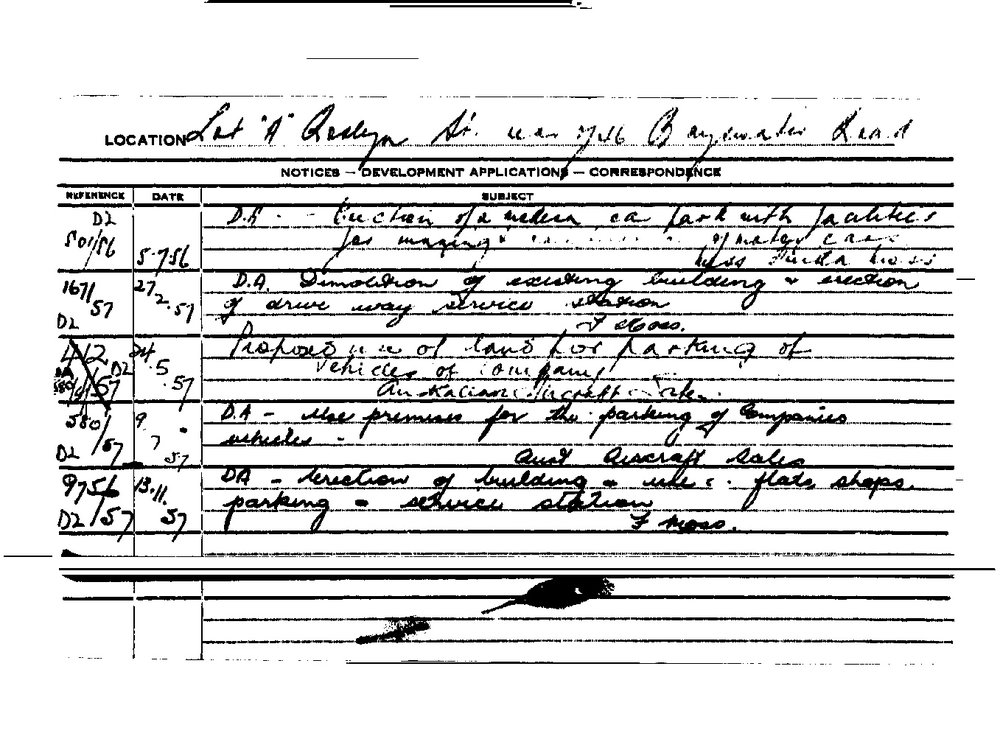 LOCATION Lot "A" Roslyn St. near 7/16 Bayswater Road
NOTICES — DEVELOPMENT APPLICATIONS — CORRESPONDENCE
REFERENCE DATE SUBJECT
D2 D.A. - Erection of a modern car park with facilities
501/56 5.7.56 for of motor cars
Miss Moss
1671/57 27.2.57 D.A. Demolition of existing building & erection
D2 of drive way service station
F Moss.
412 D2 24.5.57 Proposed use of land for parking of
vehicles of company
Australian Aircraft Sales
580/57 9.7.57 D.A - Use premises for the parking of Companies
D2 vehicles -
Aust Aircraft Sales
9756/57 13.11.57 DA - Erection of building & use flats, shops,
D2 parking & service station
F Moss.